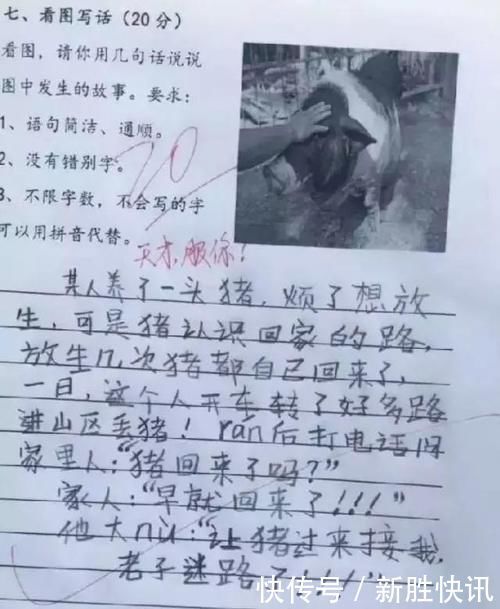 七、看图写话（20分）
看图，请你用几句话说说
图中发生的故事。要求：
1、语句简洁、通顺。
2、没有错别字。
3、不限字数，不会写的字
可以用拼音代替。
20
天才，服你！
某人养了一头猪，烦了想放
生，可是猪认识回家的路，
放生几次猪都自己回来了，
一日，这个人开车转了好多路
进山区丢猪！rán后打电话问
家里人：“猪回来了吗？”
家人：“早就回来了！！！”
他大nù：“让猪过来接我，
老子迷路了！！！！”
快传号 / 新胜快讯